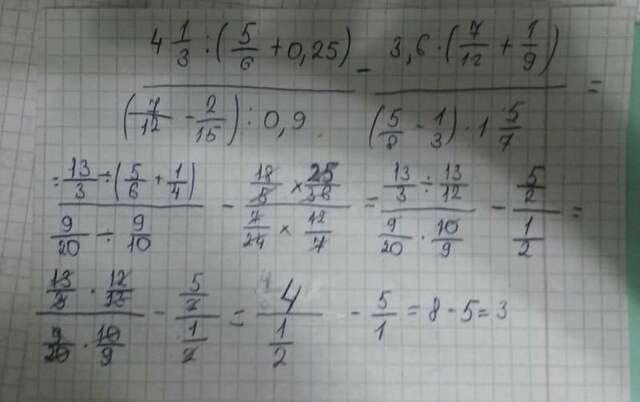 4 1/3 : (5/6 + 0,25) / (7/12 - 2/15) : 0,9 - 3,6 · (7/12 + 1/9) / (5/8 - 1/3) · 1 5/7 =
= 13/3 ÷ (5/6 + 1/4) / 9/20 ÷ 9/10 - 18/5 × 25/36 / 7/24 × 12/7 = 13/3 ÷ 13/12 / 9/20 · 10/9 - 5/2 / 1/2 =
13/3 · 12/13 / 9/20 · 10/9 - 5/2 / 1/2 = 4 / 1/2 - 5/1 = 8 - 5 = 3